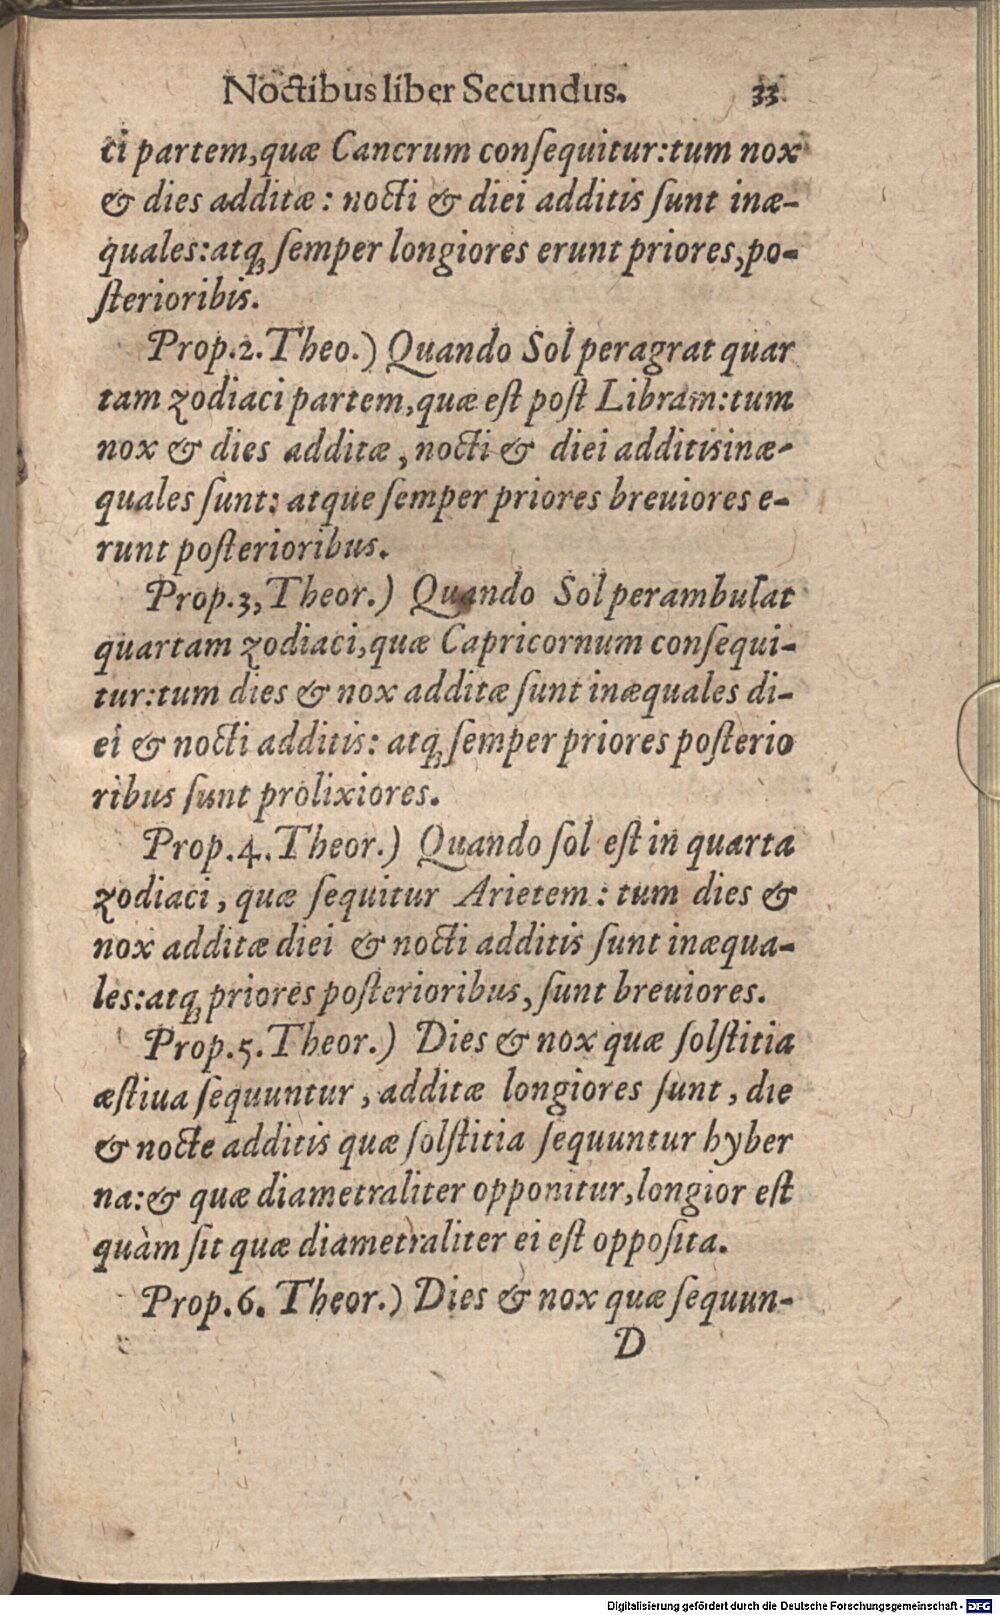 Noctibus liber Secundus. 33
ci partem,quæ Cancrum conſequitur:tum nox
& dies additæ: nocti & diei additis ſunt inæ-
quales:atqꝫ ſemper longiores erunt priores,po-
ſterioribis.
Prop.2.Theo.) Quando Sol peragrat quar
tam zodiaci partem,quæ eſt poſt Libram:tum
nox & dies additæ, nocti & diei additis inæ-
quales ſunt: atque ſemper priores breuiores e-
runt poſterioribus.
Prop.3,Theor.) Quando Sol perambulat
quartam zodiaci,quæ Capricornum conſequi-
tur:tum dies & nox additæ ſunt inæquales di-
ei & nocti additis: atqꝫ ſemper priores poſterio
ribus ſunt prolixiores.
Prop.4.Theor.) Quando ſol eſt in quarta
zodiaci, quæ ſequitur Arietem: tum dies &
nox additæ diei & nocti additis ſunt inæqua-
les:atqꝫ priores poſterioribus, ſunt breuiores.
Prop.5.Theor.) Dies & nox quæ ſolſtitia
æſtiua ſequuntur, additæ longiores ſunt, die
& nocte additis quæ ſolſtitia ſequuntur hyber
na:& quæ diametraliter opponitur,longior eſt
quàm ſit quæ diametraliter ei eſt oppoſita.
Prop.6. Theor.) Dies & nox quæ ſequun-
D
Digitalisierung gefördert durch die Deutsche Forschungsgemeinschaft - DFG